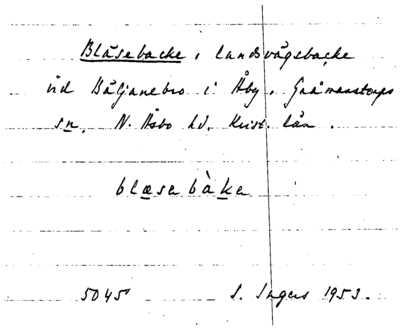 Blåsebacke, landsvägsbacke
vid Bäljanebro i Åby, Gråmanstorps
sn, N. Åsbo hd. Krist. län.
blæsabàka
5045 S. Ingers 1953.